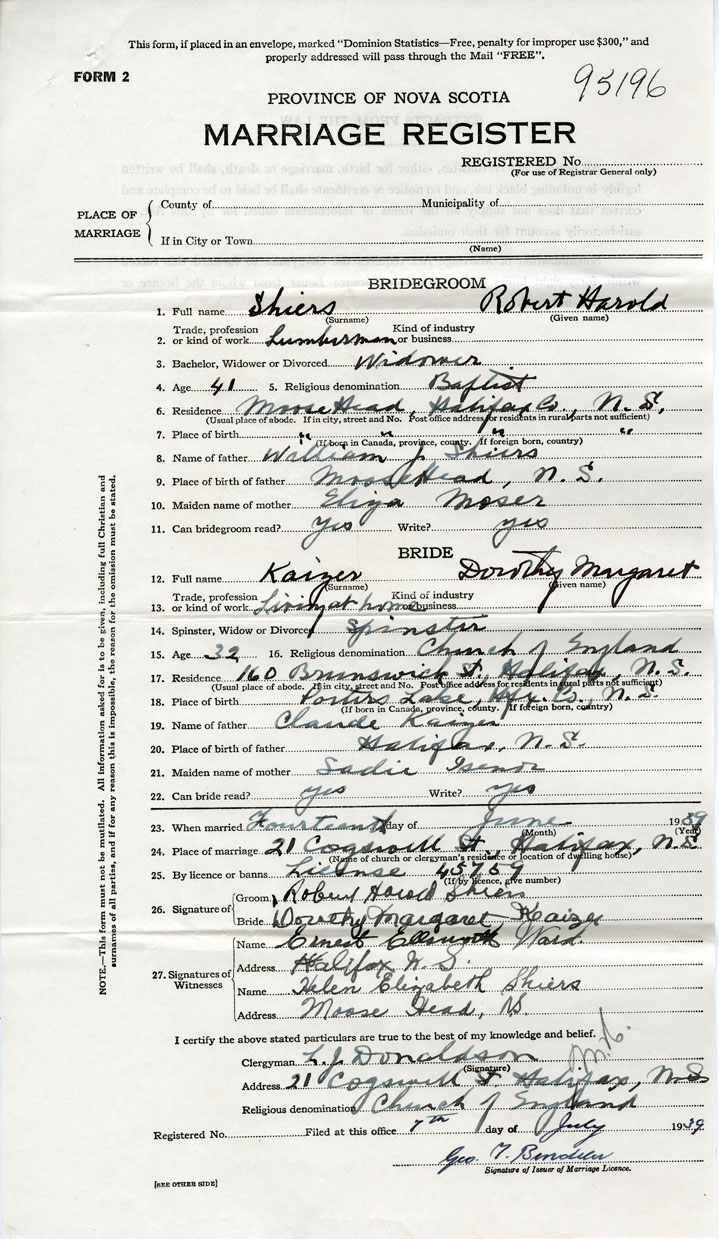 This form, if placed in an envelope, marked "Dominion Statistics—Free, penalty for improper use $300," and
properly addressed will pass through the Mail "FREE".
FORM 2
95196
PROVINCE OF NOVA SCOTIA
MARRIAGE REGISTER
REGISTERED No.
(For use of Registrar General only)
PLACE OF MARRIAGE
County of
Municipality of
If in City or Town
(Name)
BRIDEGROOM
1. Full name Shiers Robert Harold
(Surname) (Given name)
2. Trade, profession or kind of work Lumberman Kind of industry or business
3. Bachelor, Widower or Divorced Widower
4. Age 41 5. Religious denomination Baptist
6. Residence Moose Head, Halifax Co., N. S.
(Usual place of abode. If in city, street and No. Post office address for residents in rural parts not sufficient)
7. Place of birth " " " "
(If born in Canada, province, county. If foreign born, country)
8. Name of father William J. Shiers
9. Place of birth of father Moose Head, N. S.
10. Maiden name of mother Eliza Moser
11. Can bridegroom read? yes Write? yes
BRIDE
12. Full name Kaizer Dorothy Margaret
(Surname) (Given name)
13. Trade, profession or kind of work Living at home Kind of industry or business
14. Spinster, Widow or Divorced Spinster
15. Age 32 16. Religious denomination Church of England
17. Residence 160 Brunswick St, Halifax, N. S.
(Usual place of abode. If in city, street and No. Post office address for residents in rural parts not sufficient)
18. Place of birth Porters Lake, Hfx. Co., N. S.
(If born in Canada, province, county. If foreign born, country)
19. Name of father Claude Kaizer
20. Place of birth of father Halifax, N. S.
21. Maiden name of mother Sadie Isenor
22. Can bride read? yes Write? yes
23. When married Fourteenth day of June 1939
(Month) (Year)
24. Place of marriage 21 Cogswell St, Halifax, N. S.
(Name of church or clergyman's residence or location of dwelling house)
25. By licence or banns License 45759
(If by licence, give number)
26. Signature of Groom Robert Harold Shiers
Bride Dorothy Margaret Kaizer
27. Signatures of Witnesses
Name Ernest Ellsworth Ward
Address Halifax N. S.
Name Helen Elizabeth Shiers
Address Moose Head, NS.
I certify the above stated particulars are true to the best of my knowledge and belief.
Clergyman L. J. Donaldson
(Signature)
Address 21 Cogswell St. Halifax, N.S
Religious denomination Church of England
Registered No. Filed at this office 7th day of July 1939
Signature of Issuer of Marriage Licence.
[SEE OTHER SIDE]
NOTE.—This form must not be mutilated. All information asked for is to be given, including full Christian and
surnames of all parties, and if for any reason this is impossible, the reason for the omission must be stated.